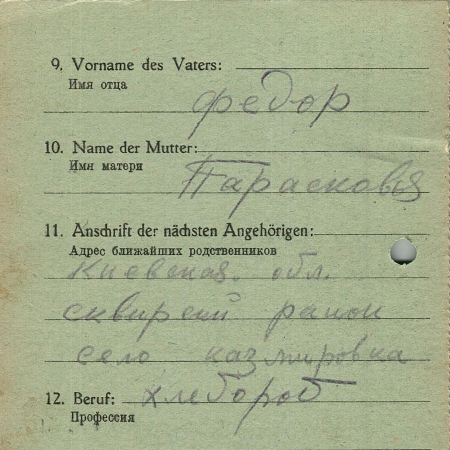 9. Vorname des Vaters:
Имя отца
федор
10. Name der Mutter:
Имя матери
Парасковья
11. Anschrift der nächsten Angehörigen:
Адрес ближайших родственников
Киевская. обл.
сквирский район
село казмировка
12. Beruf: хлебороб
Профессия